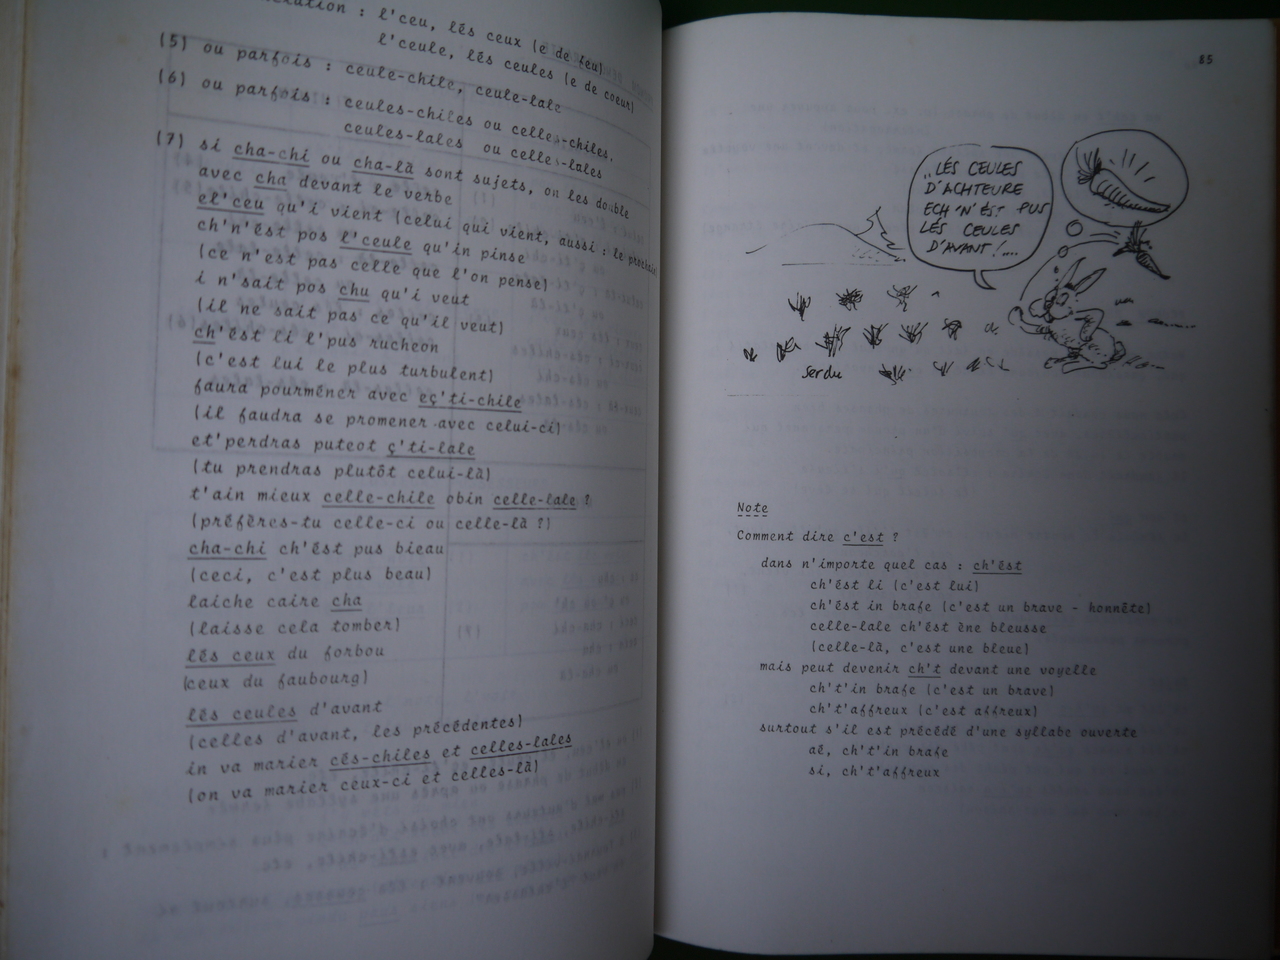 : l'ceu, lés ceux (e de feu)
l'ceule, lés ceules (e de coeur)
(5) ou parfois : ceule-chile, ceule-lale
(6) ou parfois : ceules-chiles ou celles-chiles,
ceules-lales ou celles-lales
(7) si cha-chi ou cha-là sont sujets, on les double
avec cha devant le verbe
el'ceu qu'i vient (celui qui vient, aussi : le prochain)
ch'n'ést pos l'ceule qu'in pinse
(ce n'est pas celle que l'on pense)
i n'sait pos chu qu'i veut
(il ne sait pas ce qu'il veut)
ch'ést li l'pus rucheon
(c'est lui le plus turbulent)
faura pourméner avec eç'ti-chile
(il faudra se promener avec celui-ci)
et'perdras puteot ç'ti-lale
(tu prendras plutôt celui-là)
t'ain mieux celle-chile obin celle-lale ?
(préfères-tu celle-ci ou celle-là ?)
cha-chi ch'ést pus bieau
(ceci, c'est plus beau)
laiche caire cha
(laisse cela tomber)
lés ceux du forbou
(ceux du faubourg)
lés ceules d'avant
(celles d'avant, les précédentes)
in va marier cés-chiles et celles-lales
(on va marier ceux-ci et celles-là)
85
"LÉS CEULES
D'ACHTEURE
ECH'N'ÉST PUS
LÉS CEULES
D'AVANT !...
serdu
Note
Comment dire c'est ?
dans n'importe quel cas : ch'ést
ch'ést li (c'est lui)
ch'ést in brafe (c'est un brave - honnête)
celle-lale ch'ést ène bleusse
(celle-là, c'est une bleue)
mais peut devenir ch't devant une voyelle
ch't'in brafe (c'est un brave)
ch't'affreux (c'est affreux)
surtout s'il est précédé d'une syllabe ouverte
aé, ch't'in brafe
si, ch't'affreux